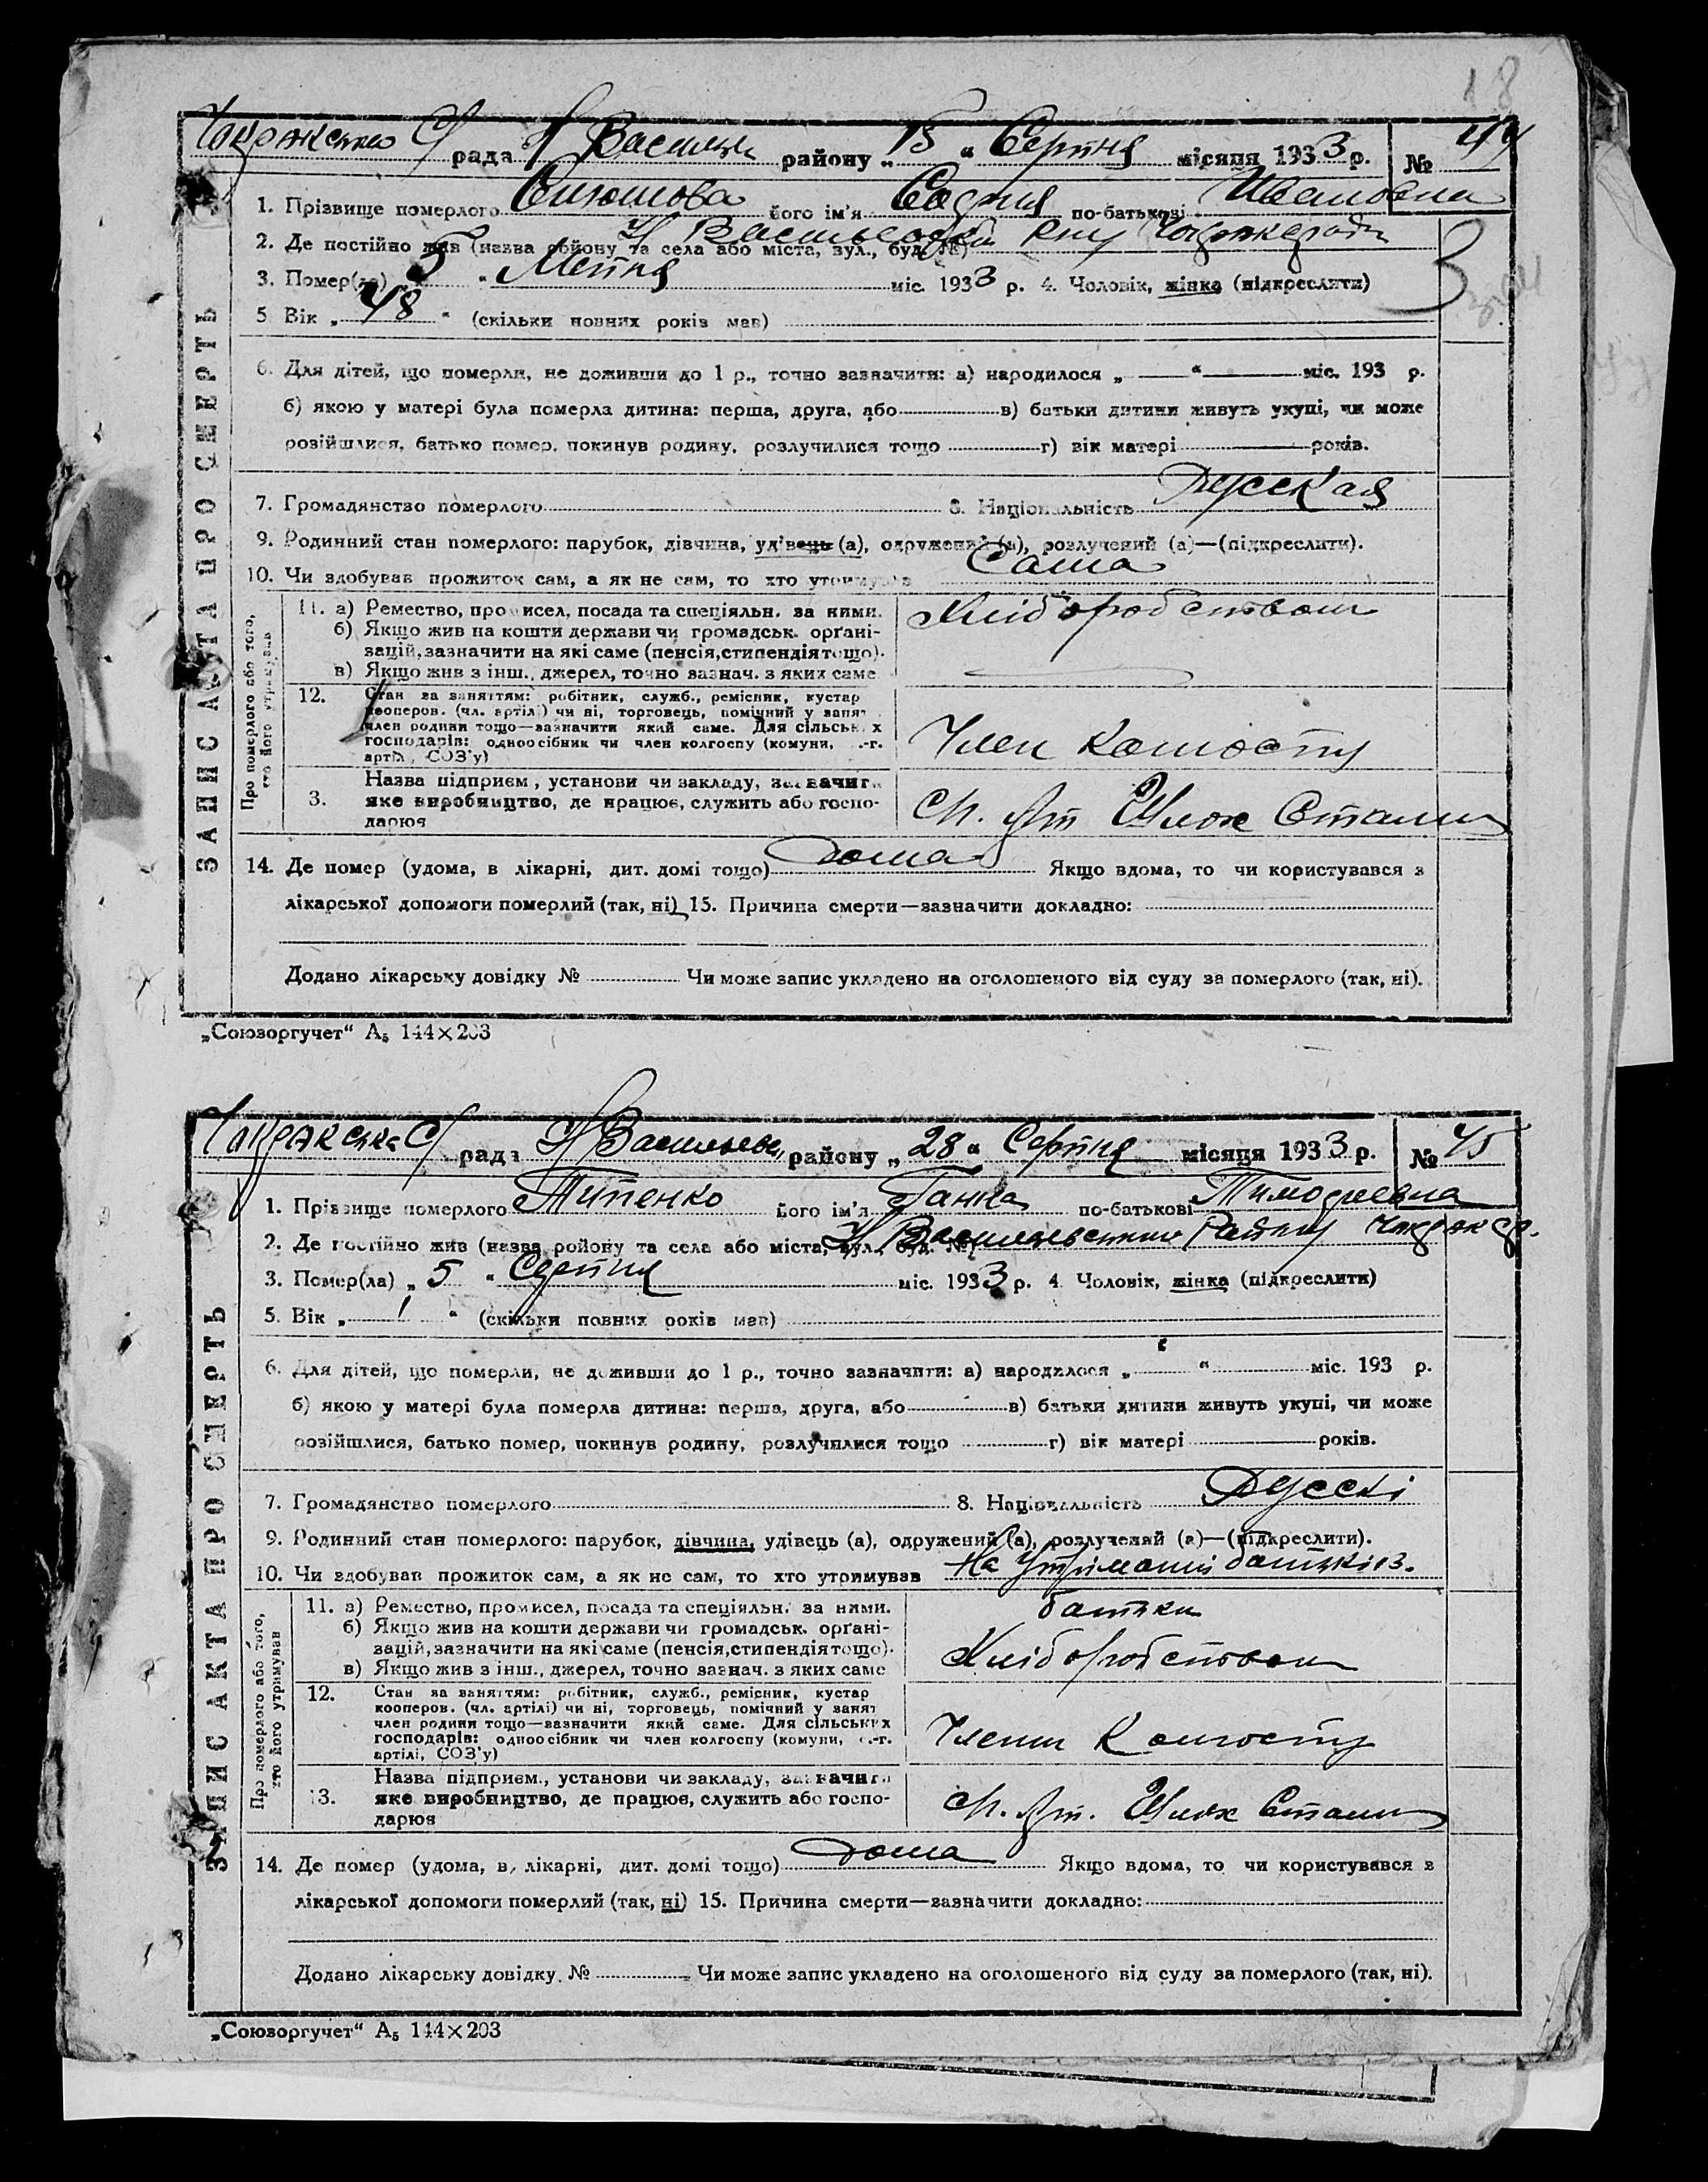 18
рада Н Василів району „15“ Серпня місяця 1933 р. № 44
1. Прізвище померлого його ім'я Софія по-батькові Ивановна
2. Де постійно жив (назва району та села або міста, вул., буд. №) Н Васильевськ. р-ну
3. Помер(ла) „5“ Липня міс. 1933 р. 4. Чоловік, жінка (підкреслити)
5 Вік „48“ (скільки повних років мав)
6. Для дітей, що померли, не доживши до 1 р., точно зазначити: а) народилося „ “ міс. 193 р.
б) якою у матері була померла дитина: перша, друга, або в) батьки дитини живуть укупі, чи може
розійшлися, батько помер, покинув родину, розлучилися тощо г) вік матері років.
7. Громадянство померлого 8. Національність Русская
9. Родинний стан померлого: парубок, дівчина, удівець (а), одружений (а), розлучений (а)—(підкреслити).
10. Чи здобував прожиток сам, а як не сам, то хто утримував Сама
ЗАПИС АКТА ПРО СМЕРТЬ
Про померлого або того, хто його утримував
11. а) Ремество, промисел, посада та спеціяльн. за ними. Хліборобством
б) Якщо жив на кошти держави чи громадськ. орґані-
зацій, зазначити на які саме (пенсія, стипендія тощо).
в) Якщо жив з інш., джерел, точно зазнач. з яких саме
12. Стан за заняттям: робітник, служб., ремісник, кустар
кооперов. (чл. артілі) чи ні, торговець, помічний у занят
член родини тощо—зазначити який саме. Для сільських
господарів: одноосібник чи член колгоспу (комуни, с.-г. Член колгоспу
артілі, СОЗ'у)
Назва підприєм., установи чи закладу, зазначити
3. яке виробництво, де працює, служить або госпо- с.г. Арт Шлях Сталіна
дарює
14. Де помер (удома, в лікарні, дит. домі тощо) дома Якщо вдома, то чи користувався з
лікарської допомоги померлий (так, ні) 15. Причина смерти—зазначити докладно:
Додано лікарську довідку № Чи може запис укладено на оголошеного від суду за померлого (так, ні).
„Союзоргучет“ А₅ 144×203
рада Н Васильев. району „28“ Серпня місяця 1933 р. № 45
1. Прізвище померлого Типенко його ім'я Ганна по-батькові Тимофіевна
2. Де постійно жив (назва району та села або міста, вул., буд. №) Н Васильевськім Району
3. Помер(ла) „5“ Серпня міс. 1933 р. 4 Чоловік, жінка (підкреслити)
5. Вік „1“ (скільки повних років мав)
6. Для дітей, що померли, не доживши до 1 р., точно зазначити: а) народилося „ “ міс. 193 р.
б) якою у матері була померла дитина: перша, друга, або в) батьки дитини живуть укупі, чи може
розійшлися, батько помер, покинув родину, розлучилися тощо г) вік матері років.
7. Громадянство померлого 8. Національність Русскі
9. Родинний стан померлого: парубок, дівчина, удівець (а), одружений (а), розлучений (а)—(підкреслити).
10. Чи здобував прожиток сам, а як не сам, то хто утримував На Утриманні батьків.
ЗАПИС АКТА ПРО СМЕРТЬ
Про померлого або того, хто його утримував
11. а) Ремество, промисел, посада та спеціяльн. за ними. батьки
б) Якщо жив на кошти держави чи громадськ. орґані-
зацій, зазначити на які саме (пенсія, стипендія тощо). Хліборобством
в) Якщо жив з інш., джерел, точно зазнач. з яких саме
12. Стан за заняттям: робітник, служб., ремісник, кустар
кооперов. (чл. артілі) чи ні, торговець, помічний у занят
член родини тощо—зазначити який саме. Для сільських
господарів: одноосібник чи член колгоспу (комуни, с.-г. Члени Колгоспу
артілі, СОЗ'у)
Назва підприєм., установи чи закладу, зазначити
13. яке виробництво, де працює, служить або госпо- с.г. Арт. Шлях Сталіна
дарює
14. Де помер (удома, в лікарні, дит. домі тощо) дома Якщо вдома, то чи користувався з
лікарської допомоги померлий (так, ні) 15. Причина смерти—зазначити докладно:
Додано лікарську довідку № Чи може запис укладено на оголошеного від суду за померлого (так, ні).
„Союзоргучет“ А₅ 144×203